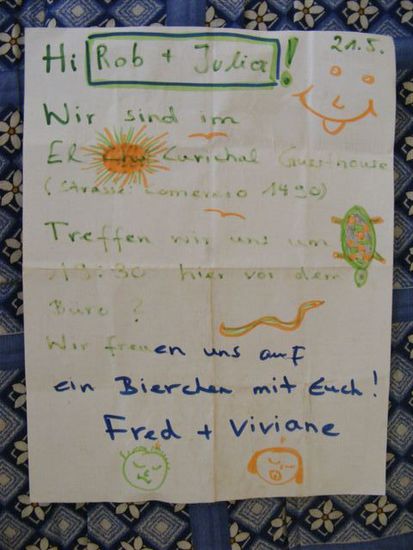 Hi Rob + Julia! 21.5.
Wir sind im
El Curichal Guesthouse
(Strasse: Comercio 1490)
Treffen wir uns um
19:30 hier vor dem
Büro?
Wir freuen uns auf
ein Bierchen mit Euch!
Fred + Viviane